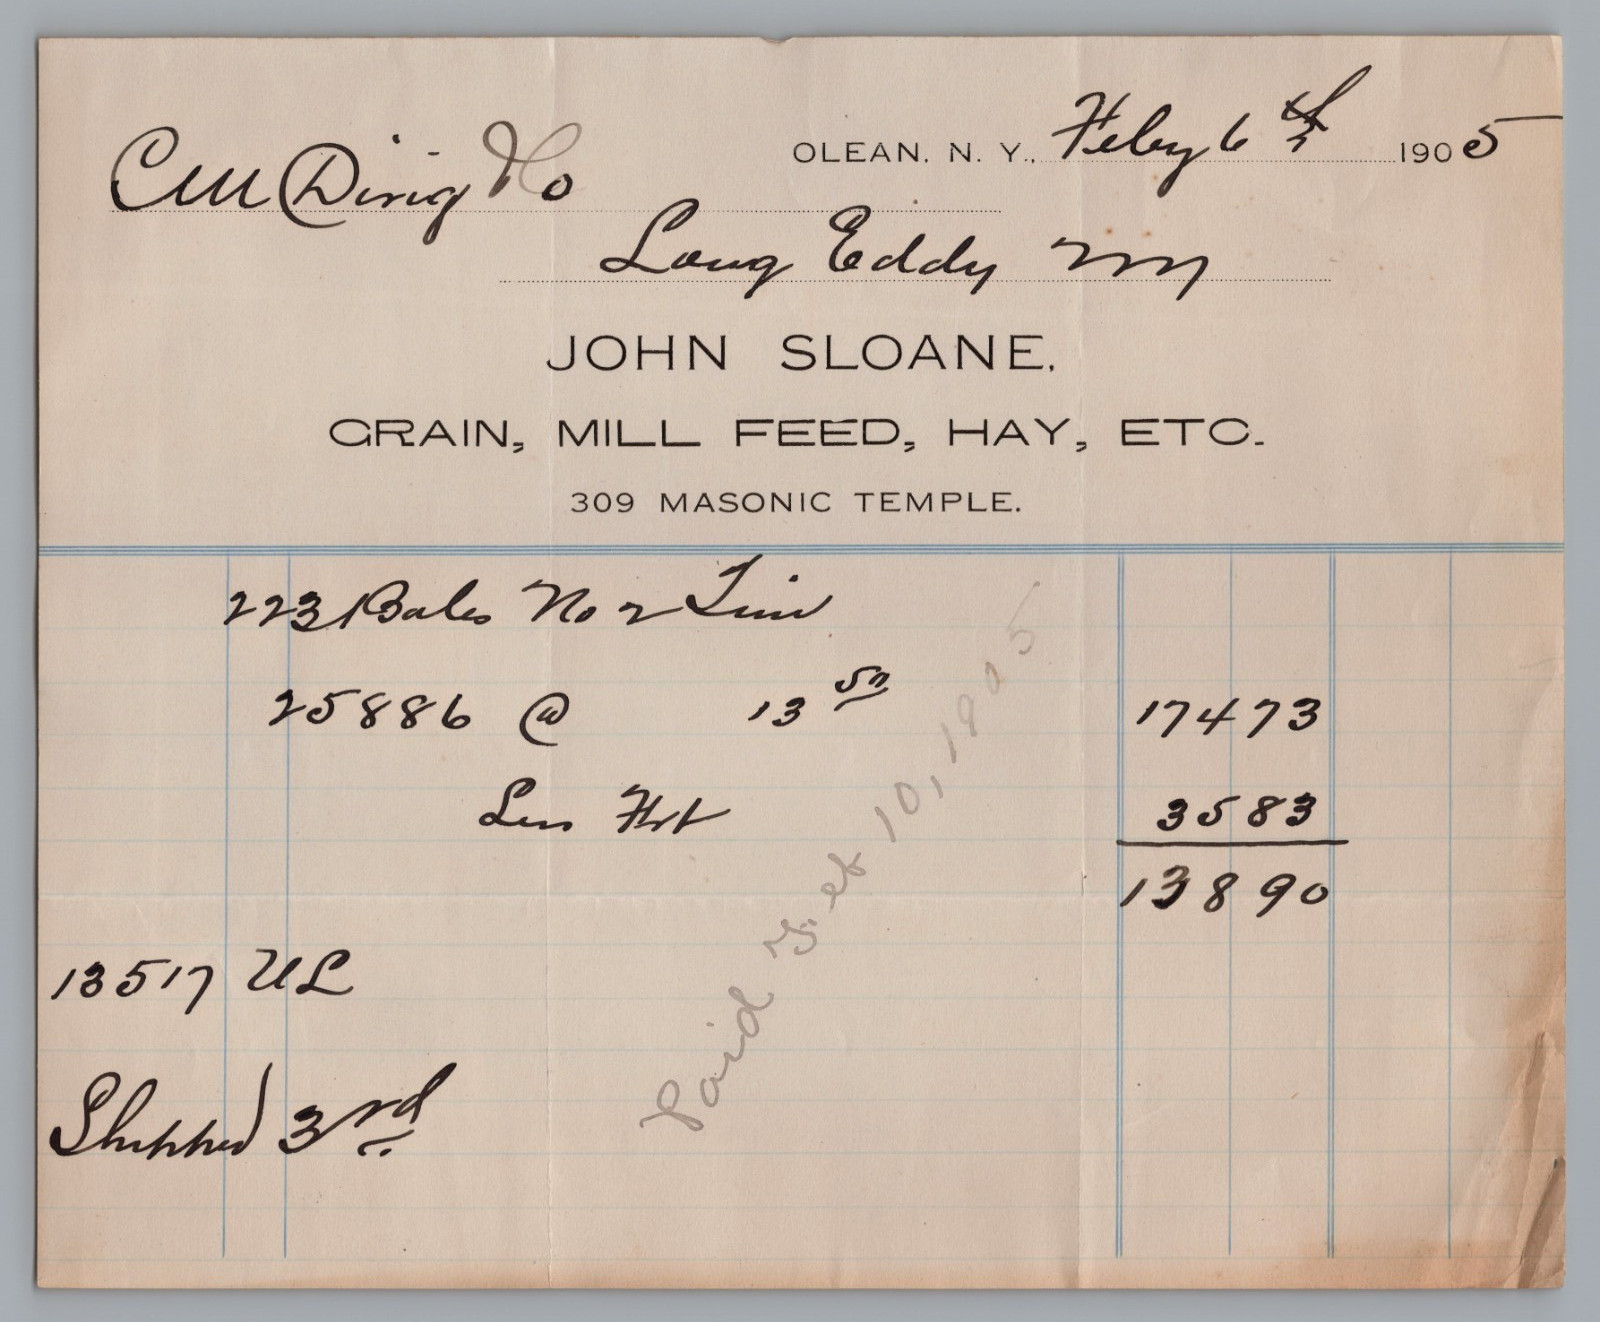 OLEAN, N. Y., Feby 6th 1905
Long Eddy NY
JOHN SLOANE.
GRAIN, MILL FEED, HAY, ETC.
309 MASONIC TEMPLE.
223 Bales No 2 Tim
25886 @ 13 50 174 73
Less Frt 35 83
138 90
13517 UL
Shipped 3rd
Paid 10, 1905